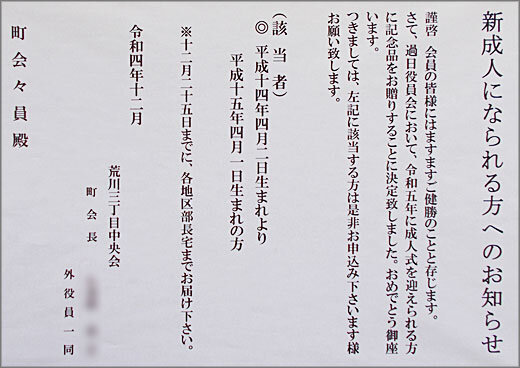 新成人になられる方へのお知らせ
謹啓　会員の皆様にはますますご健勝のことと存じます。
さて、過日役員会において、令和五年に成人式を迎えられる方
に記念品をお贈りすることに決定致しました。おめでとう御座
います。
つきましては、左記に該当する方は是非お申込み下さいます様
お願い致します。
（該当者）
◎ 平成十四年四月二日生まれより
平成十五年四月一日生まれの方
※十二月二十五日までに、各地区部長宅までお届け下さい。
令和四年十二月
荒川三丁目中央会
町会長
外役員一同
町会々員殿